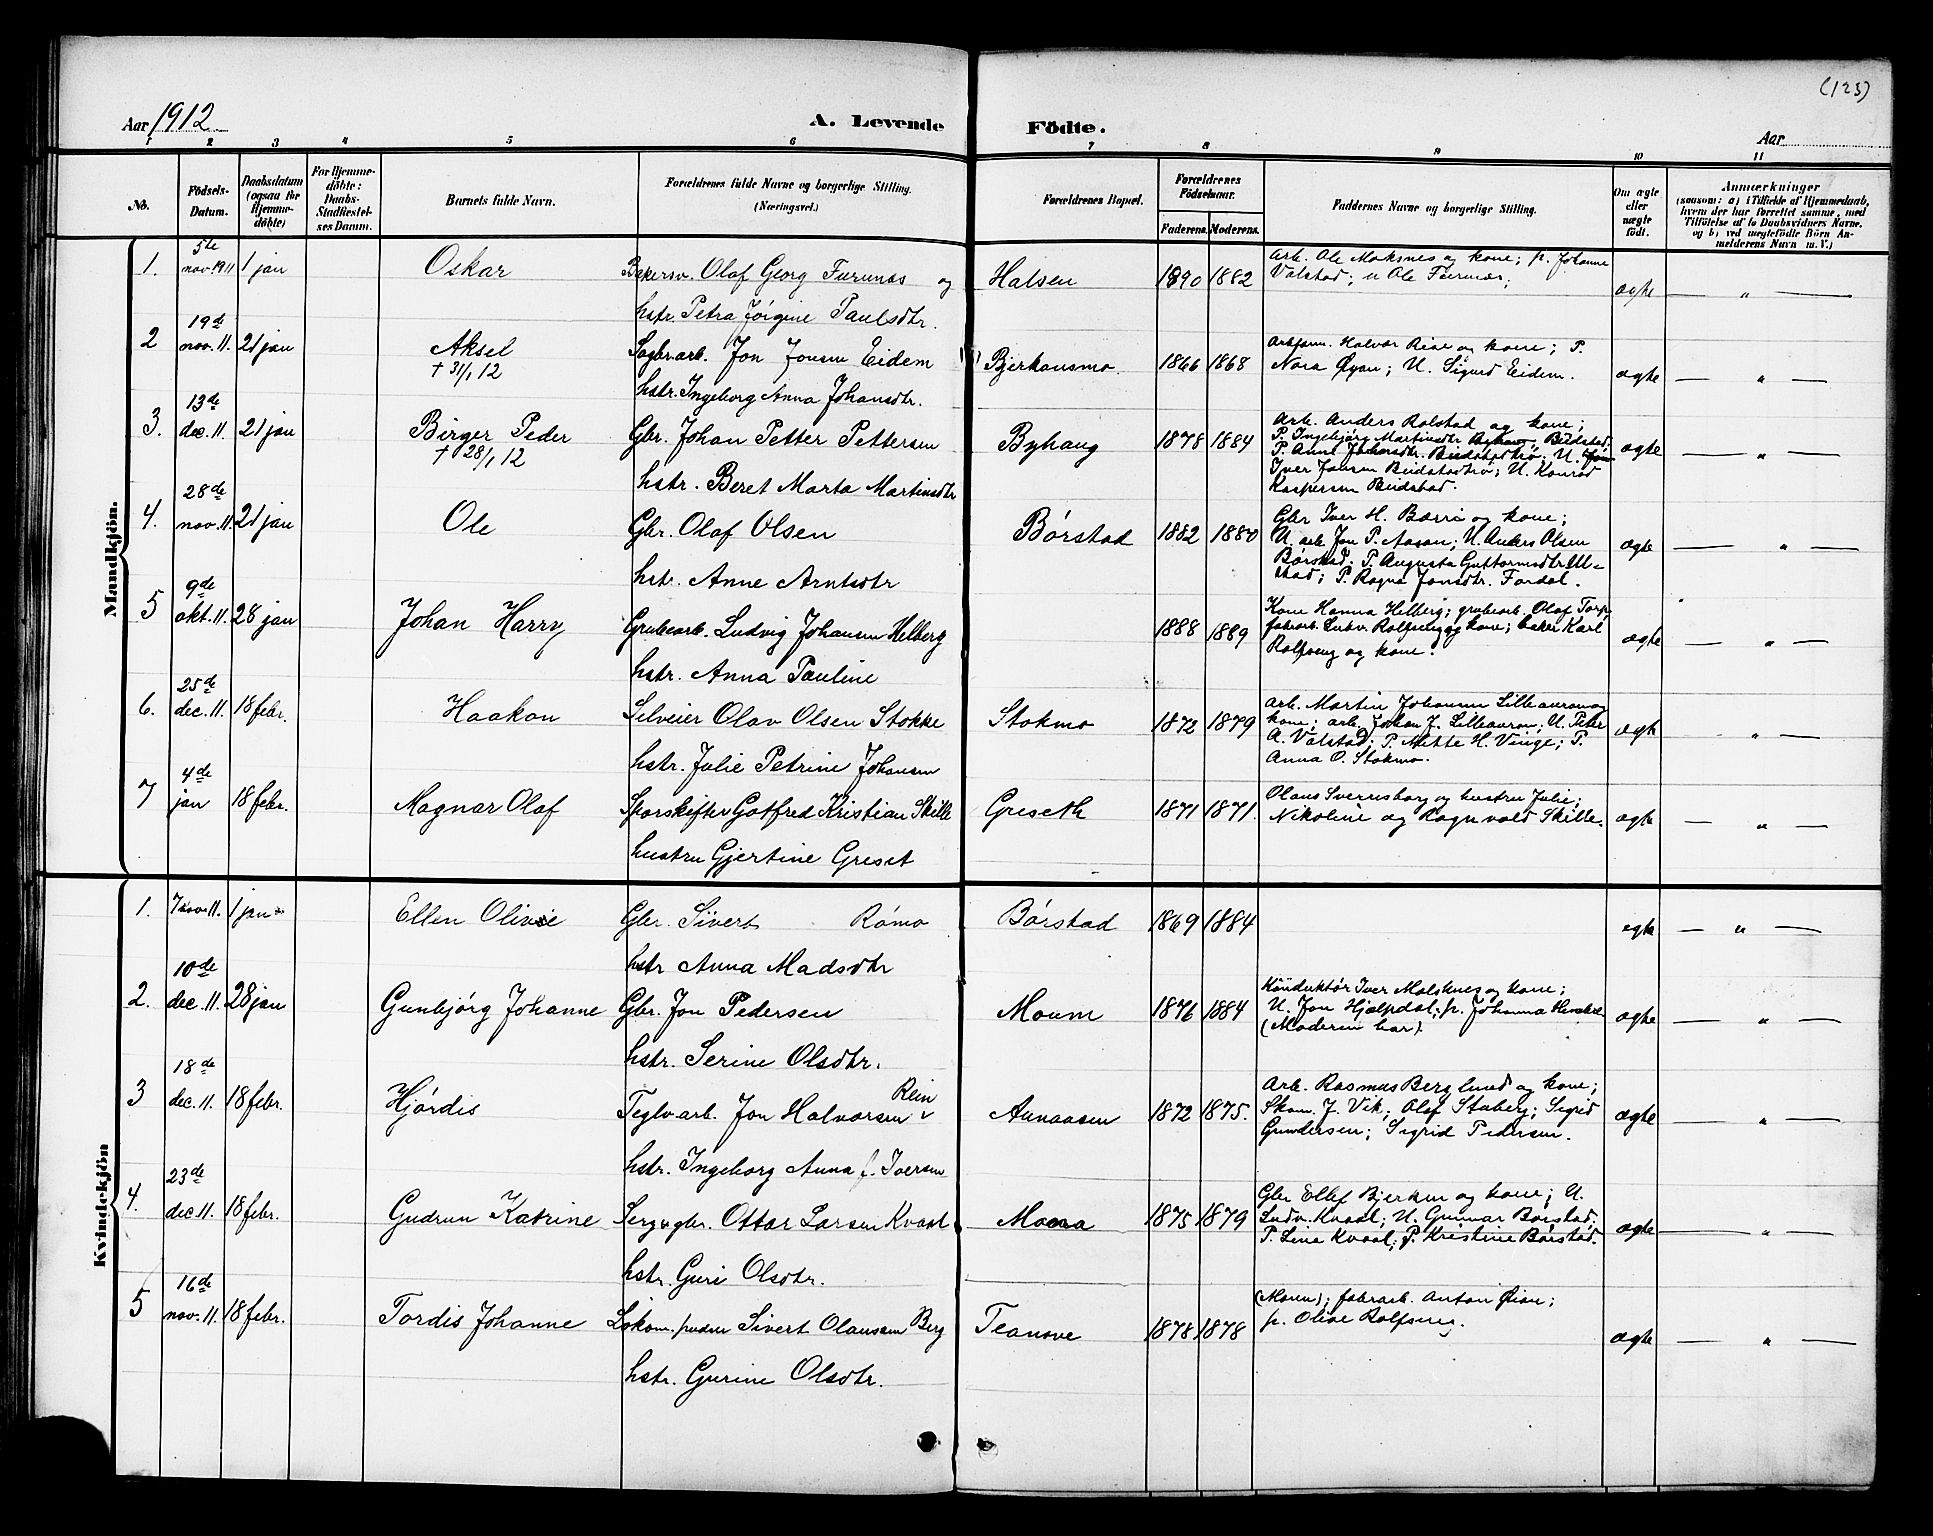 (123)
Aar 1912
A. Levende Födte.
Aar
1 2 3 4 5 6 7 8 9 10 11
No.
Födsels-Datum.
Daabsdatum (ogsaa for Hjemme-döbte)
For Hjemme-döbte: Daabs-Stadfæstel-ses Datum.
Barnets fulde Navn.
Forældrenes fulde Navne og borgerlige Stilling. (Næringsvei.)
Forældrenes Bopæl.
Forældrenes Födselsaar.
Faderens. Moderens.
Faddernes Navne og borgerlige Stilling.
Om ægte eller uægte födt.
Anmærkninger
(saasom: a) i Tilfælde af Hjemmedaab, hvem der har forrettet samme, med Tilföielse af to Daabsvidners Navne, og b) ved uægtefödte Börn An-melderens Navn m. V.)
Mandkjön.
1. 5te nov. 1911 1 jan Oskar
Bakersv. Olaf Georg Furunæs og
hstr. Petra Jørgine Paulsdtr.
Halsen 1890 1882
Arb. Ole Moksnes og kone; p. Johanne
Valstad; u Ole
ægte — " —
2 19de nov. 11. 21 jan Aksel
+ 31/1 12
Sagbr.arb. Jon Jonsen Eidem
hstr. Ingeborg Anna Johansdtr.
Bjerkansmo. 1866 1868
Halvor Reie og kone; P.
Nora Øyan; U. Sigurd Eidem.
ægte — " —
3. 13de dec. 11. 21 jan Birger Peder
+ 28/1 12
Gbr. Johan Petter Pettersen
hstr. Beret Marta Martinsdtr
Byhaug 1878 1884
Arb. Anders Rolstad og kone;
P. Ingebjørg Martinsdtr Byhaug Budstad;
P. Anne Johansdtr. Budstadtrø; U. Jon
Iver Jonsen Budstadtrø; U. Konrad
Kaspersen Budstad.
ægte — " —
4. 28de nov. 11. 21 jan Ole
Gbr. Olaf Olsen
hstr. Anne Arntsdtr
Børstad 1882 1880
Gbr Iver H. Borri og kone;
U. arb. Jon P. Aasan; U. Anders Olsen
Børstad; P. Augusta Guttormsdtr Ul-
stad; P. Ragna Jonsdtr. Fordal.
ægte — " —
5 9de okt. 11. 28 jan Johan Harry
Grubearb. Ludvig Johansen Helberg
hstr. Anna Pauline
1888 1889
Kone Hanna Helberg; grubearb. Olaf Torp
fabrarb. Ludv. Rolfseng og kone; baker Karl
Rolfseng og kone.
ægte — " —
6. 25de dec. 11. 18 febr. Haakon
Selveier Olav Olsen Stokke
hstr. Julie Petrine Johansen
Stokmo 1872 1879
arb. Martin Johansen Lilleauron og
kone; arb. Johan J. Lilleauron; U. Peter
A. Valstad; P. Mette H. Vinge; P.
Anna O. Stokmo.
ægte — " —
7 4de jan 18 febr. Magnar Olaf
Sporskifter Gotfred Kristian Skille
hustru Gjertine Greset
Greseth 1871 1871.
Olaus Sverresborg og hustru Julie;
Nikoline og Ragnvald Skille.
ægte — " —
Kvindekjön
1. 7 nov. 11. 1 jan Ellen Olivie
Gbr. Sivert Rømo
hstr Anna Madsdtr
Børstad 1869 1884
egte — " —
2. 10de dec. 11. 28 jan Gunbjørg Johanne
Gbr. Jon Pedersen
hstr. Serine Olsdtr.
Moum 1876 1884
Konduktør Iver Molsknes og kone;
U. Jon Hjælpdal; p. Johanna
(Moderen bar).
ægte — " —
3 18de dec. 11. 18 febr. Hjørdis
Teglv.arb. Jon Halvorsen Rein
hstr. Ingeborg Anna f. Iversen
Aunaasen 1872 1875.
Arb. Rasmus Berglund og kone;
Skom. J. Vik; Olaf Stuberg; Sigrid
Gundersen; Sigrid Pedersen.
ægte — " —
4. 23de dec. 11. 18 febr. Gudrun Katrine
Serg. & gbr. Ottar Larsen Kvaal
hstr. Guri Olsdtr.
Moora 1875 1879
Gbr Ellef Bjerken og kone; U.
Ludv. Kvaal; U. Gunnar Børstad;
P. Lina Kvaal; P. Kristine Børstad.
ægte — " —
5 16de nov. 11. 18 febr. Tordis Johanne
Lokom.pudser Sivert Olaussen Berg
hstr. Gurine Olsdtr.
Teanove 1878 1878
(Moren); fabrarb. Anton Øian;
p. Olive Rolfseng.
ægte — " —